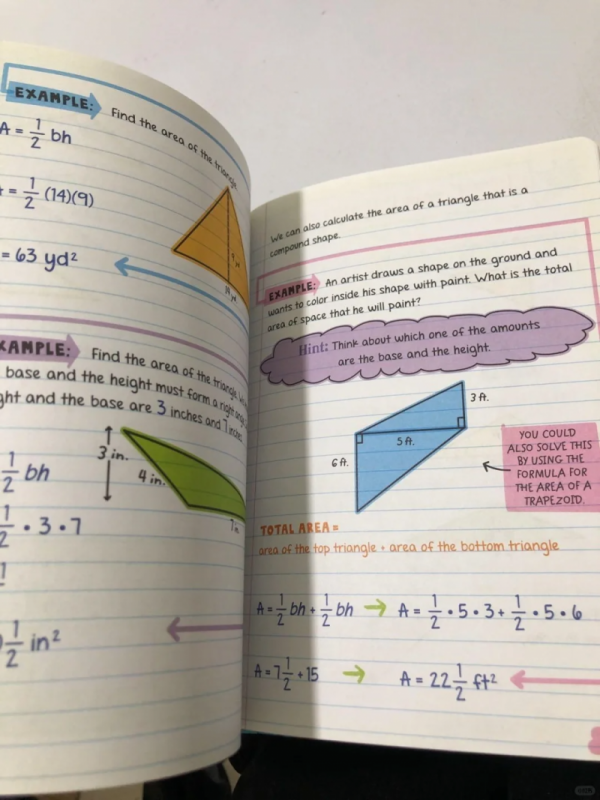 EXAMPLE: Find the area of the triangle.
A = 1/2 bh
= 1/2 (14)(9)
= 63 yd²
EXAMPLE: Find the area of the triangle.
base and the height must form a right angle
ght and the base are 3 inches and 7 inches.
3 in.
4 in.
7 in.
1/2 bh
1/2 • 3 • 7
1/2 in²
We can also calculate the area of a triangle that is a
compound shape.
EXAMPLE: An artist draws a shape on the ground and
wants to color inside his shape with paint. What is the total
area of space that he will paint?
Hint: Think about which one of the amounts
are the base and the height.
3 ft.
5 ft.
6 ft.
YOU COULD
ALSO SOLVE THIS
BY USING THE
FORMULA FOR
THE AREA OF A
TRAPEZOID.
TOTAL AREA =
area of the top triangle + area of the bottom triangle
A = 1/2 bh + 1/2 bh → A = 1/2 • 5 • 3 + 1/2 • 5 • 6
A = 7 1/2 + 15 → A = 22 1/2 ft²